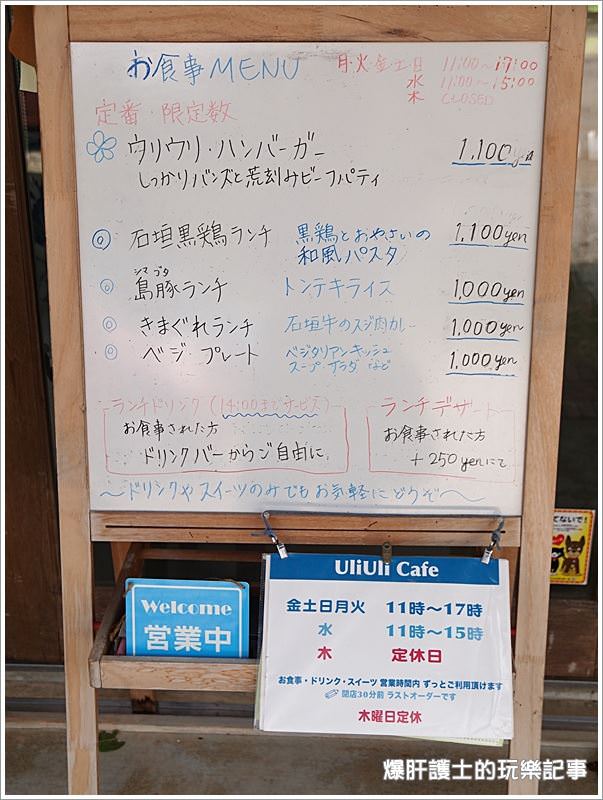 お食事MENU
月・火・金・土・日 11:00～17:00
水 11:00～15:00
木 CLOSED
定番・限定数
ウリウリ・ハンバーガー 1,100yen
しっかりバンズと荒刻みビーフパティ
石垣黒鶏ランチ 黒鶏とおやさいの 1,100yen
和風パスタ
シマ ブタ
島豚ランチ トンテキライス 1,000yen
きまぐれランチ 石垣牛のスジ肉カレー 1,000yen
ベジ・プレート ベジタリアンキッシュ 1,000yen
スープ、サラダ など
ランチドリンク(14:00までサービス)
お食事された方
ドリンクバーからご自由に
ランチデザート
お食事された方
+250yenにて
～ドリンクやスイーツのみでもお気軽にどうぞ～
Welcome
営業中
UliUli Cafe
金土日月火 11時～17時
水 11時～15時
木 定休日
お食事・ドリンク・スイーツ 営業時間内 ずっとご利用頂けます
閉店30分前 ラストオーダーです
木曜日定休
爆肝護士的玩樂記事